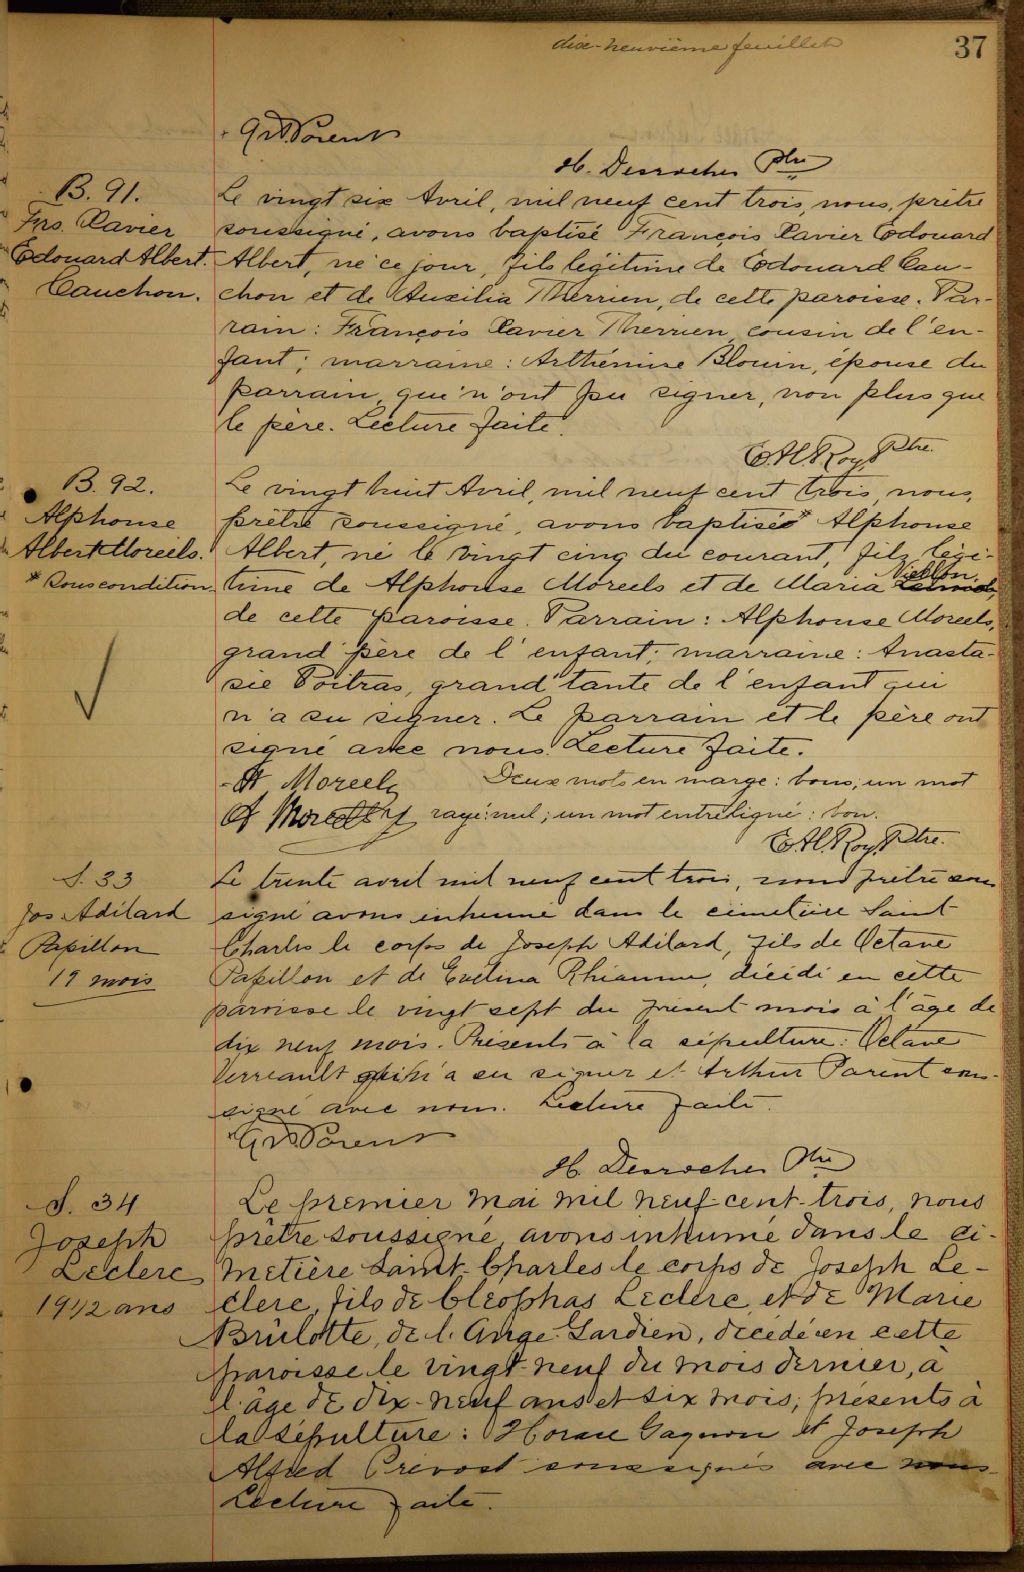 dix-neuvième feuillet
37
H. Desroches Ptre
B. 91.
Frs. Xavier
Edouard Albert.
Cauchon.
Le vingt six Avril, mil neuf cent trois, nous, prêtre
soussigné, avons baptisé François Xavier Edouard
Albert, né ce jour, fils légitime de Edouard Cau-
chon et de Auxilia Therrien, de cette paroisse. Par-
rain: François Xavier Therrien, cousin de l'en-
fant; marraine: Arthémise Blouin, épouse du
parrain, qui n'ont pu signer, non plus que
le père. Lecture faite.
E.Al.Roy, Ptre.
B. 92.
Alphonse
Albert Moreels.
* sous condition
Le vingt huit Avril, mil neuf cent trois, nous,
prêtre soussigné, avons baptisé* Alphonse
Albert, né le vingt cinq du courant, fils légi-
time de Alphonse Moreels et de Maria
de cette paroisse. Parrain: Alphonse Moreels,
grand'père de l'enfant; marraine: Anasta-
sie Poitras, grand'tante de l'enfant qui
n'a su signer. Le parrain et le père ont
signé avec nous. Lecture faite.
A Moreels
Deux mots en marge: bons; un mot
A Moreels
rayé: nul; un mot entreligné: bon.
E.Al.Roy, Ptre.
S. 33
Jos Adélard
Papillon
19 mois
Le trente avril mil neuf cent trois, nous prêtre sous
signé avons inhumé dans le cimetière Saint
Charles le corps de Joseph Adélard, fils de Octave
Papillon et de Evelina décédé en cette
paroisse le vingt sept du présent mois à l'âge de
dix neuf mois. Présents à la sépulture: Octave
Verreault qui n'a su signer et Arthur Parent sous-
signé avec nous. Lecture faite.
Parent
H. Desroches Ptre
S. 34
Joseph
Leclerc
19 1/2 ans
Le premier mai mil neuf-cent-trois, nous
prêtre soussigné, avons inhumé dans le ci-
metière Saint-Charles le corps de Joseph Le-
clerc, fils de Cléophas Leclerc, et de Marie
Brûlotte, de l'Ange-Gardien, décédé en cette
paroisse le vingt-neuf du mois dernier, à
l'âge de dix-neuf ans et six mois; présents à
la sépulture: Horace Gagnon et Joseph
Alfred Prévost soussignés avec nous.
Lecture faite.